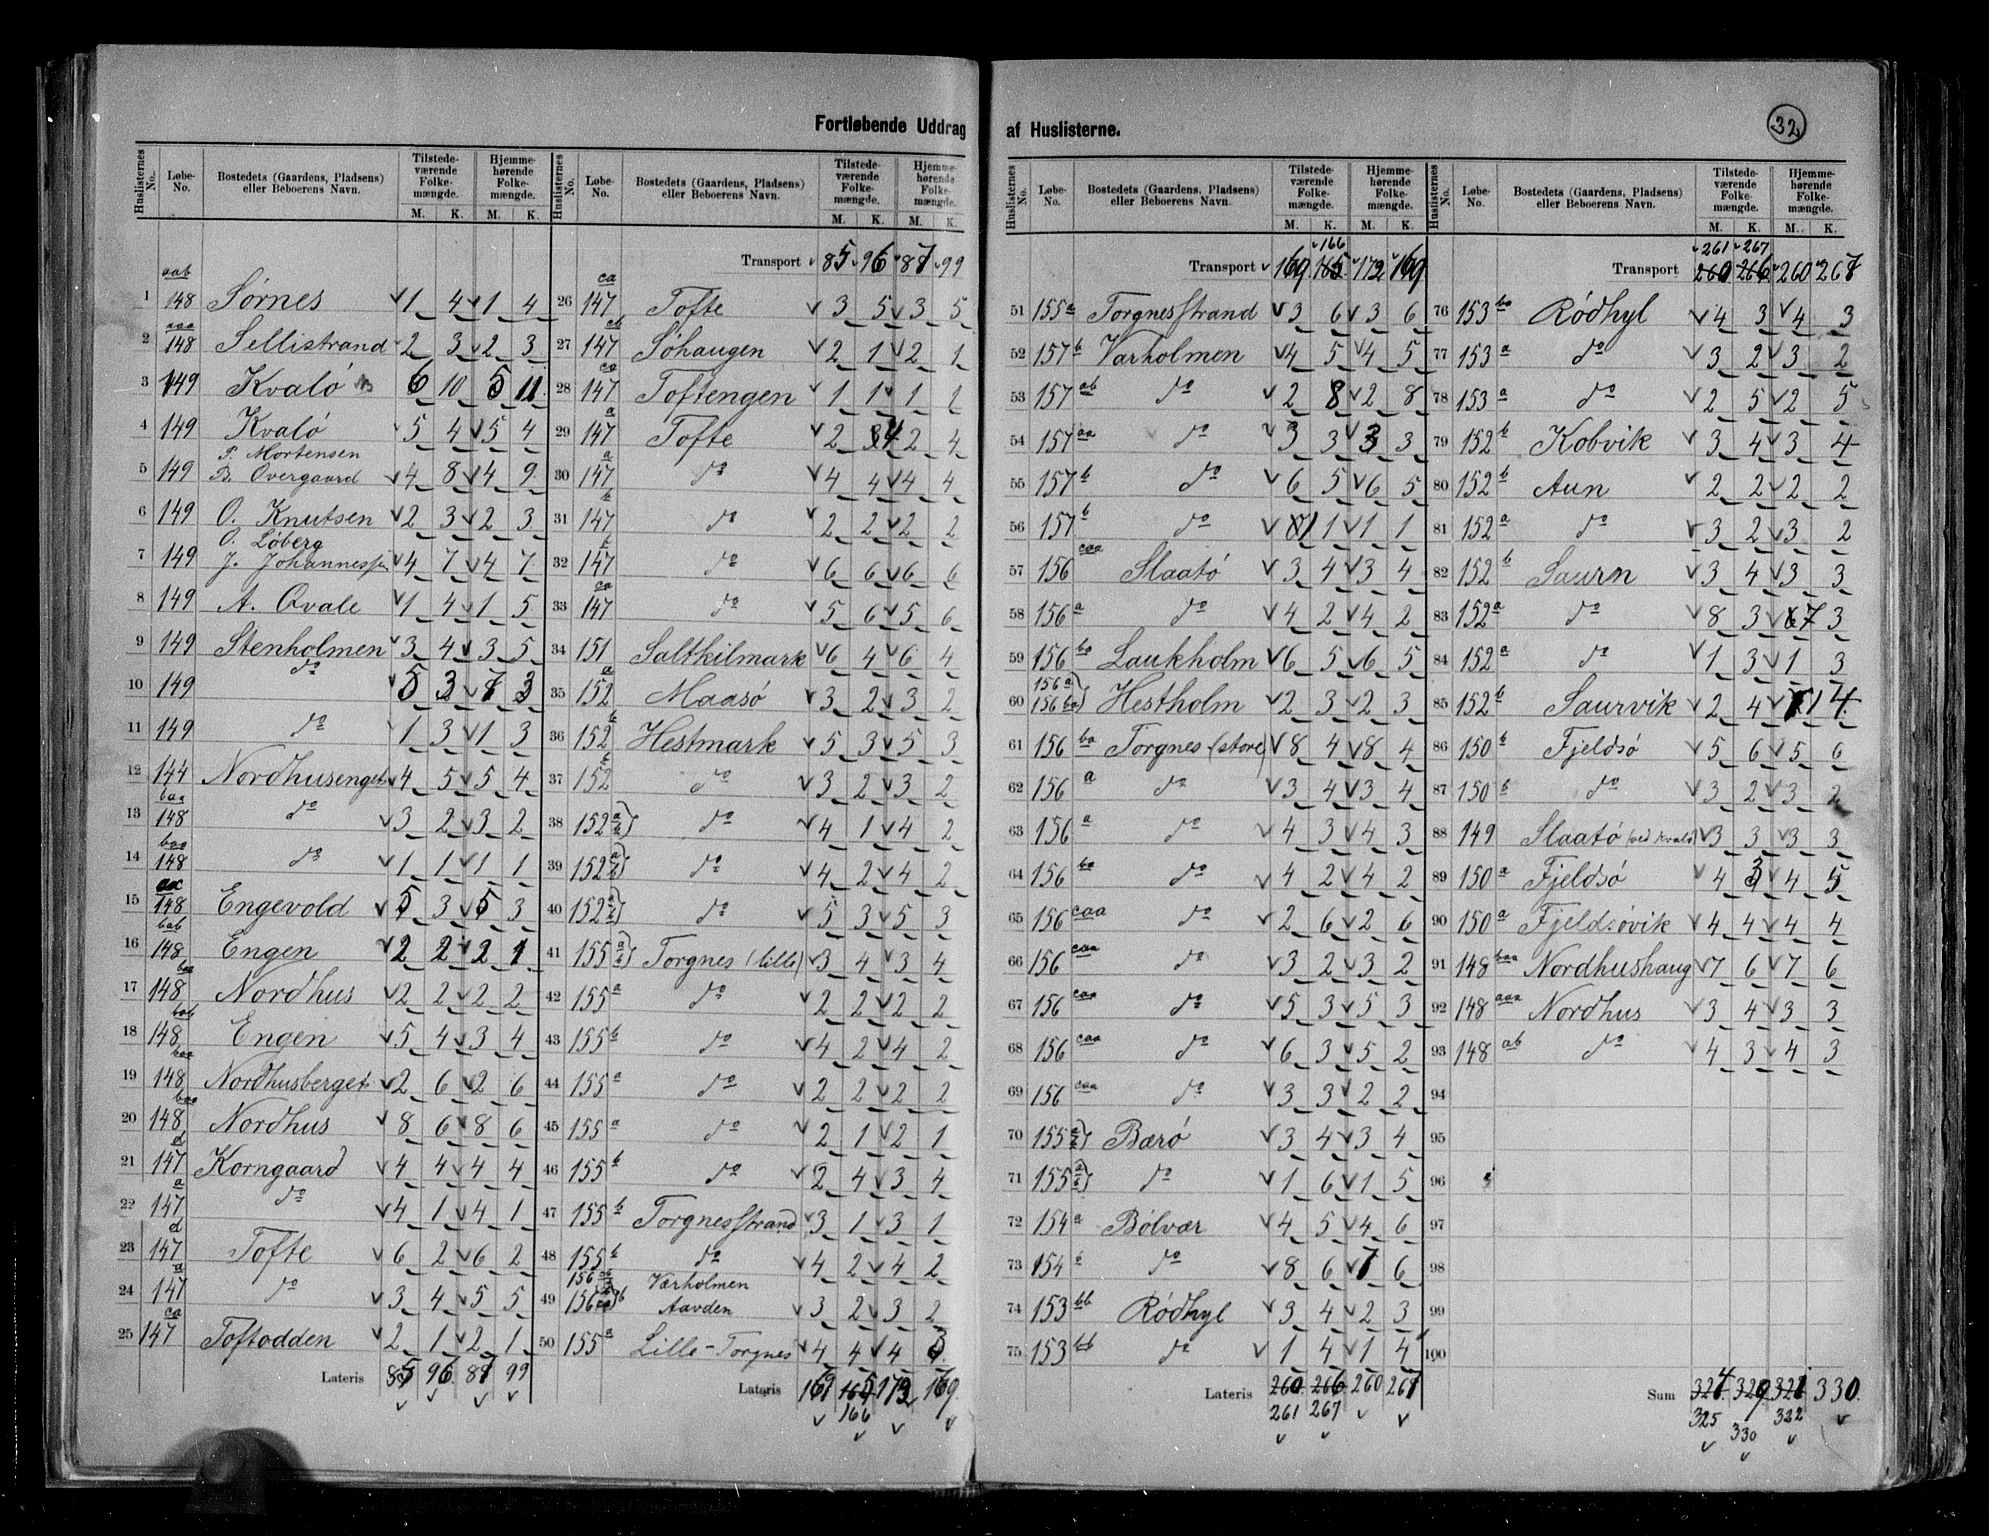 Fortløbende Uddrag af Huslisterne. 32
Huslisternes No. Løbe-No. Bostedets (Gaardens, Pladsens) eller Beboerens Navn. Tilstedeværende Folkemængde. M. K. Hjemmehørende Folkemængde. M. K.
1 148 aab Sørnes 1 4 1 4
2 148 aaa Sellistrand 2 3 2 3
3 149 Kvalø 6 10 5 11
4 149 Kvalø 5 4 5 4
5 149 P. Mortensen B. Overgaard 4 8 4 9
6 149 O. Knutsen 2 3 2 3
7 149 O. Løberg J. Johannessen 4 7 4 7
8 149 A. Qvale 1 4 1 5
9 149 Stenholmen 3 4 3 5
10 149 do 5 3 7 3
11 149 do 1 3 1 3
12 144 Nordhusenget 4 5 5 4
13 148 baa do 3 2 3 2
14 148 baa do 1 1 1 1
15 148 Engevold 5 3 5 3
16 148 bab Engen 2 2 2 1
17 148 baa Nordhus 2 2 2 2
18 148 bab Engen 5 4 3 4
19 148 baa Nordhusberget 2 6 2 6
20 148 baa Nordhus 8 6 8 6
21 147 d Korngaard 4 4 4 4
22 147 a do 4 1 4 1
23 147 d Tofte 6 2 6 2
24 147 a do 3 4 5 5
25 147 ca Toftodden 2 1 2 1
Lateris 85 96 87 99
Huslisternes No. Løbe-No. Bostedets (Gaardens, Pladsens) eller Beboerens Navn. Tilstedeværende Folkemængde. M. K. Hjemmehørende Folkemængde. M. K.
Transport 85 96 87 99
26 147 ca Tofte 3 5 3 5
27 147 Søhaugen 2 1 2 1
28 147 ca Toftengen 1 1 1 1
29 147 a Tofte 2 4 2 4
30 147 a do 4 4 4 4
31 147 b do 2 2 2 2
32 147 b do 6 6 6 6
33 147 ca do 5 6 5 6
34 151 Saltkilmark 6 4 6 4
35 152 a Maasø 3 2 3 2
36 152 b Hestmark 5 3 5 3
37 152 b do 3 2 3 2
38 152 a/b do 4 1 4 2
39 152 a/b do 4 2 4 2
40 152 a/b do 5 3 5 3
41 155 a/b Torgnes (lille) 3 4 3 4
42 155 a do 2 2 2 2
43 155 b do 4 2 4 2
44 155 a do 2 2 2 2
45 155 a do 2 1 2 1
46 155 b do 2 4 3 4
47 155 b Torgnesstrand 3 1 3 1
48 155 b do 4 2 4 2
49 156 156 Varholmen Aavden 3 2 3 2
50 155 a Lille-Torgnes 4 4 4 3
Lateris 169 165 172 169
166
Huslisternes No. Løbe-No. Bostedets (Gaardens, Pladsens) eller Beboerens Navn. Tilstedeværende Folkemængde. M. K. Hjemmehørende Folkemængde. M. K.
166
Transport 169 165 172 169
51 155 a Torgnesstrand 3 6 3 6
52 157 b Varholmen 4 5 4 5
53 157 ab do 2 8 2 8
54 157 aa do 3 3 3 3
55 157 b do 6 5 6 5
56 157 b do 1 1 1 1
57 156 caa Slaatø 3 4 3 4
58 156 a do 4 2 4 2
59 156 ba Laukholm 6 5 6 5
60 156 a 156 ba Hestholm 2 3 2 3
61 156 ba Torgnes (store) 8 4 8 4
62 156 a do 3 4 3 4
63 156 a do 4 3 4 3
64 156 ba do 4 2 4 2
65 156 caa do 2 6 2 6
66 156 caa do 3 2 3 2
67 156 caa do 5 3 5 3
68 156 caa do 6 3 5 2
69 156 caa do 3 3 2 2
70 155 a/b Bærø 3 4 3 4
71 155 a/b do 1 6 1 5
72 154 a Bølvær 4 5 4 6
73 154 b do 8 6 7 6
74 153 bb Rødhyl 3 4 2 3
75 153 bb do 1 4 1 4
Lateris 260 266 260 267
261 267
Huslisternes No. Løbe-No. Bostedets (Gaardens, Pladsens) eller Beboerens Navn. Tilstedeværende Folkemængde. M. K. Hjemmehørende Folkemængde. M. K.
261 267
Transport 260 266 260 267
76 153 ba Rødhyl 4 3 4 3
77 153 a do 3 2 3 2
78 153 a do 2 5 2 5
79 152 b Kobvik 3 4 3 4
80 152 b Aun 2 2 2 2
81 152 a do 3 2 3 2
82 152 b Saurn 3 4 3 3
83 152 a do 8 3 7 3
84 152 a do 1 3 1 3
85 152 b Saurvik 2 4 1 4
86 150 b Fjeldsø 5 6 5 6
87 150 b do 3 2 3 2
88 149 Slaatø (ved Kvalø) 3 3 3 3
89 150 a Fjeldsø 4 3 4 5
90 150 a Fjeldsøvik 4 4 4 4
91 148 baa Nordhushaug 7 6 7 6
92 148 aaa Nordhus 3 4 3 3
93 148 ab do 4 3 4 3
94
95
96
97
98
99
100
Sum 324 329 321 330
325 330 322